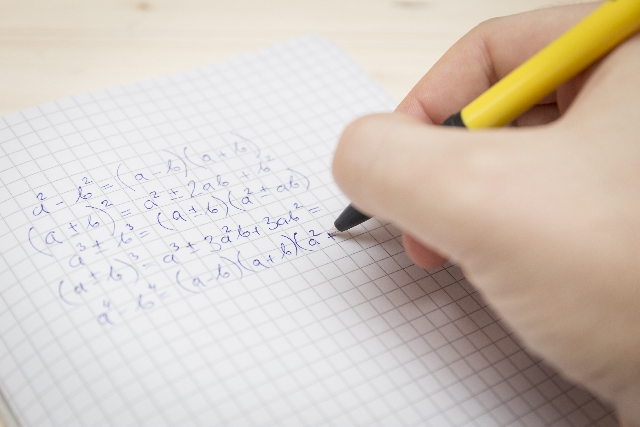 a² - b² = (a-b)(a+b)
(a ± b)² = a² ± 2ab + b²
a³ ± b³ = (a±b)(a² ± ab)
(a±b)³ = a³ ± 3a²b + 3ab² =
a⁴ - b⁴ = (a-b)(a+b)(a² +